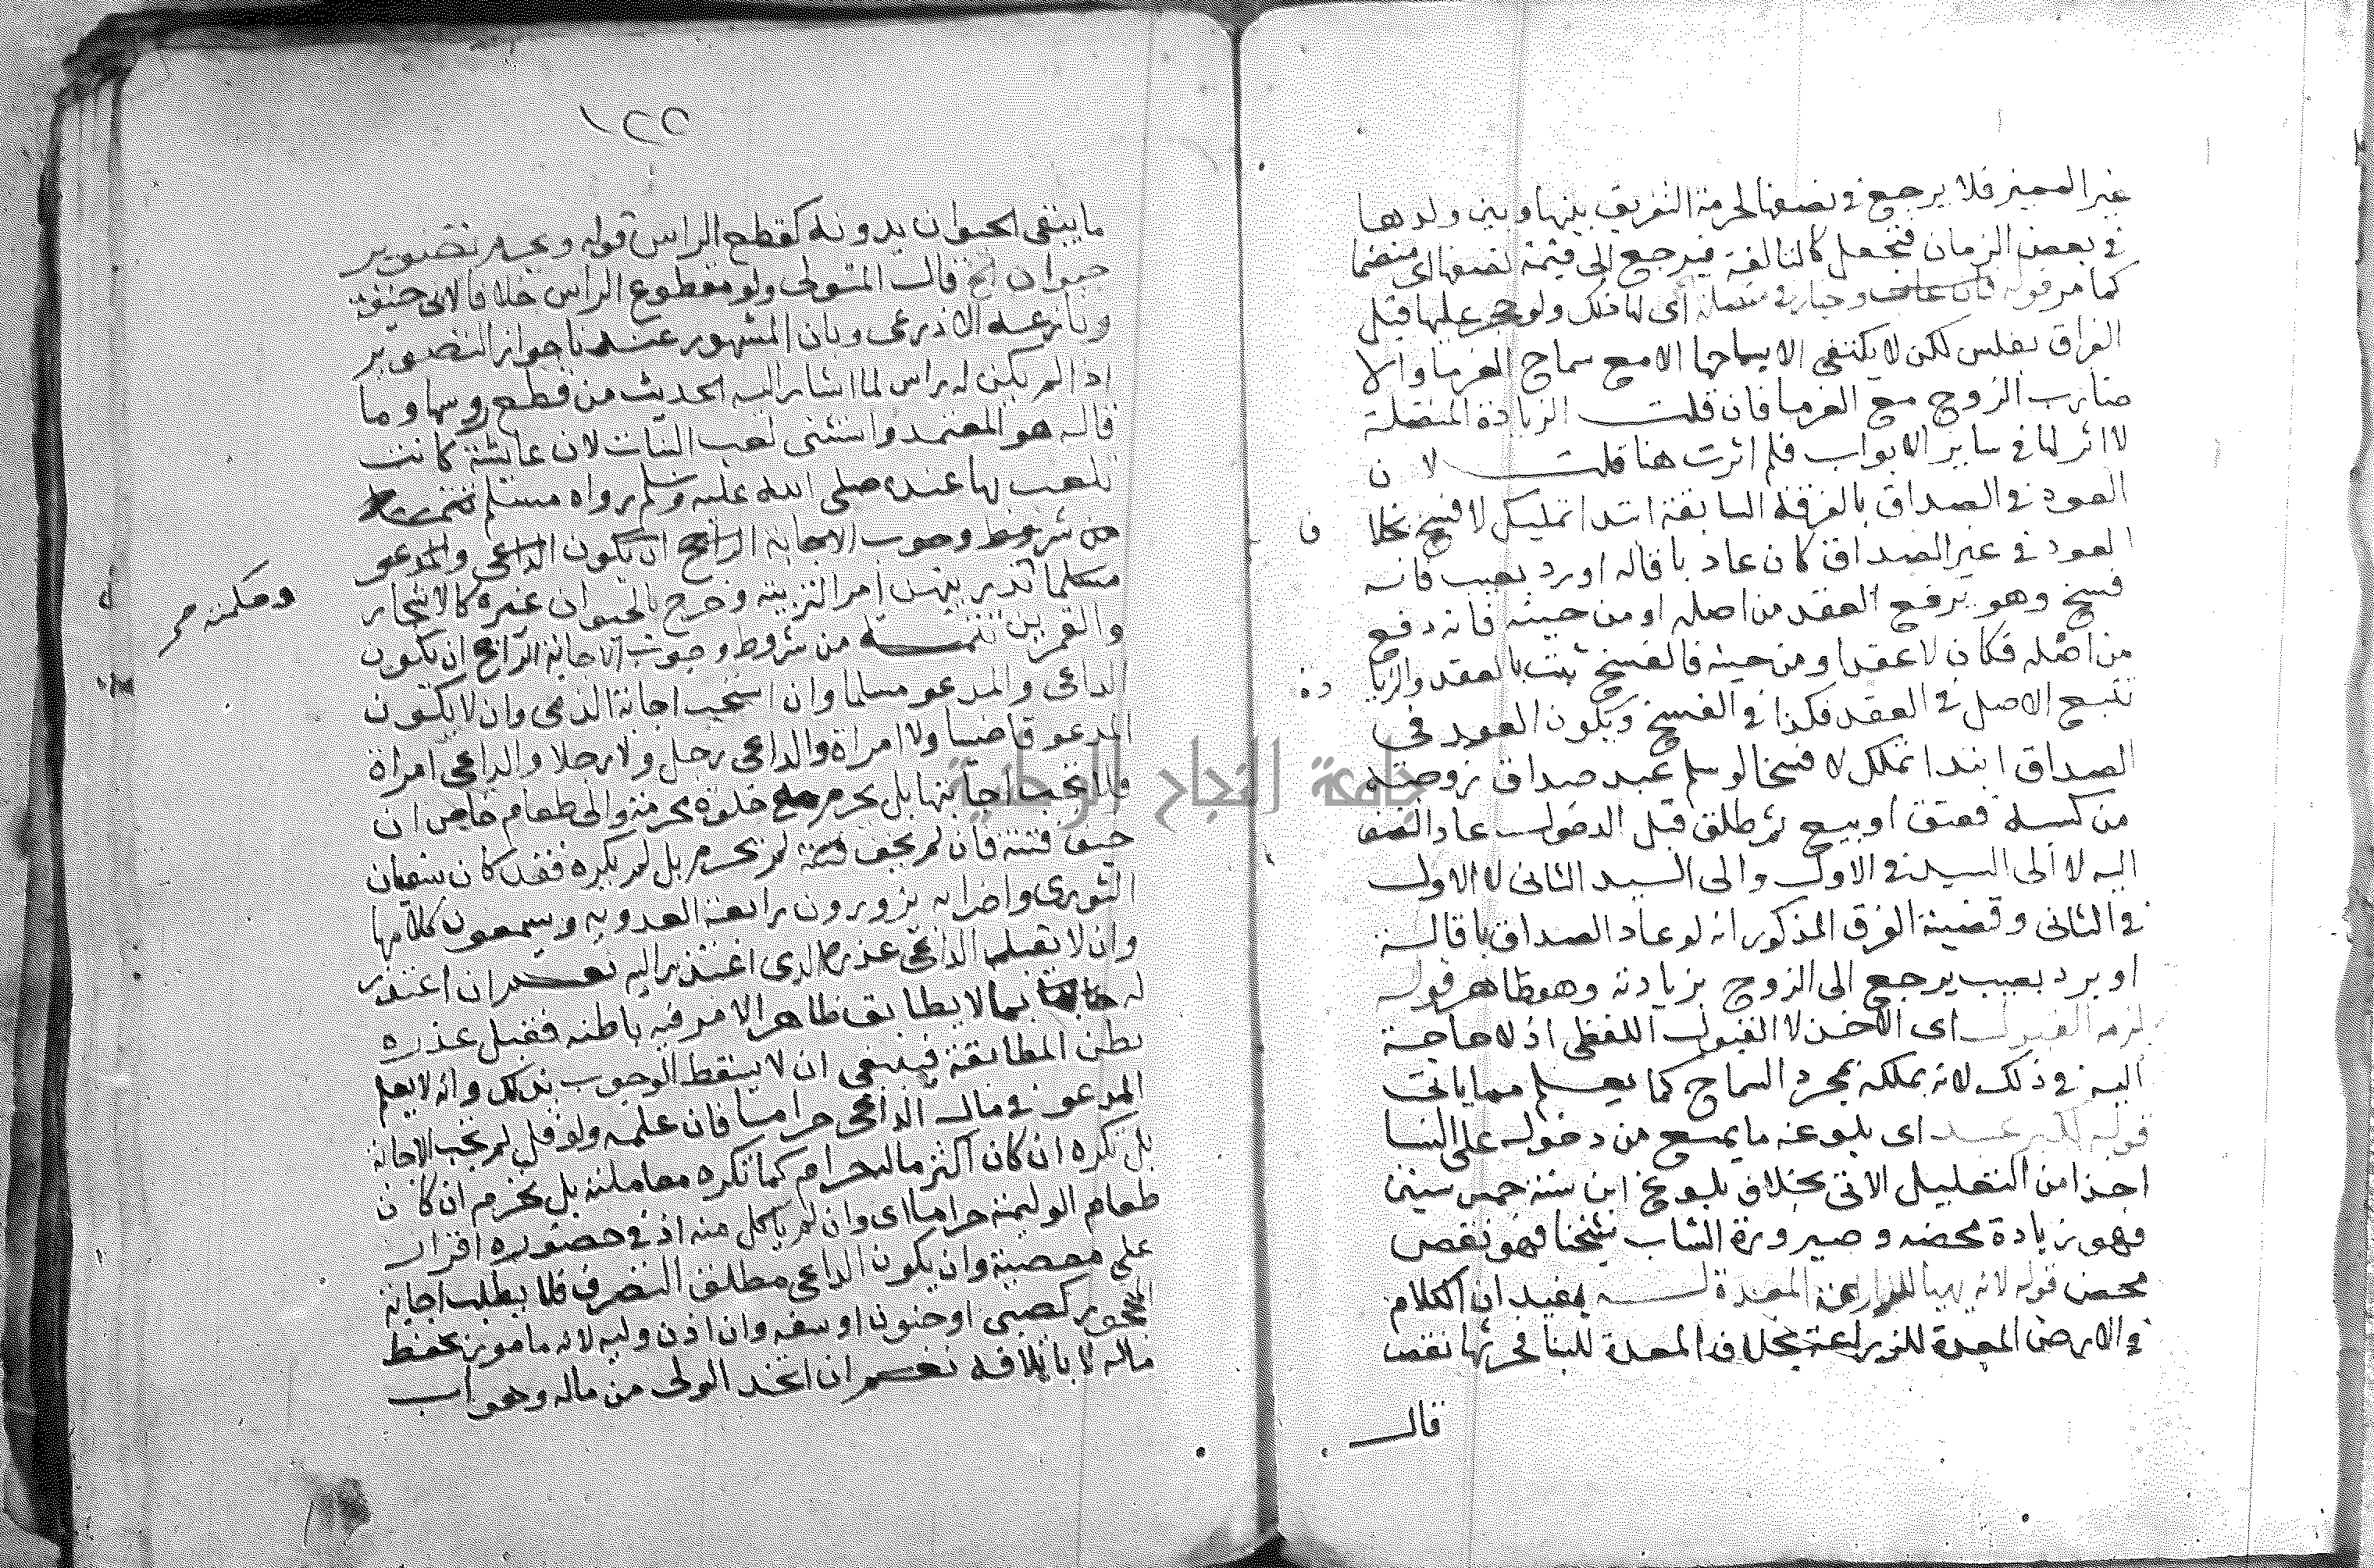 غير المميز فلا يرجع في نصفها لحرمة التفريق بينها وبين ولدها
في بعض الزمان فتجعل كالتالفة فيرجع الى قيمة نصفها اى منضما
كما مر قوله وخيار في متصلة أى لها ذلك ولو حجر عليها قبل
الفراق بفلس لكن لا يكتفى الا بسماحها الا مع سماح الغرما والا
ضارب الزوج مع الغرما فان قلت الزيادة المتصلة
لا اثر لها في ساير الابواب فلم اثرت هنا قلت لان
العود في الصداق بالفرقة السابقة ابتدا تمليك لا فسخ بخلاف
العود في غير الصداق كان عاد باقاله او رد بعيب فانه
فسخ وهو يرفع العقد من اصله او من حينه فانه دفع
من اصله فكان لا عقد او من حينه فالفسخ شبت بالعقد والزيادة
تتبع الاصل في العقد فكذا في الفسخ ويكون العود في
الصداق ابتدا تملك لا فسخا لو سلم عبد صداق زوجته
من كسبه فعتق او بيع ثم طلق قبل الدخول عاد النصف
اليه لا الى السيد في الاول والى السيد الثانى لا الاول
في الثانى وقضية الفرق المذكور انه لو عاد الصداق باقالة
او برد بعيب يرجع الى الزوج بزيادته وهو ظاهر قوله
لزمه القبول اى الاخذ لا القبول اللفظى اذ لا حاجة
اليه في ذلك لانه يملكه بمجرد السماح كما يعلم مما ياتى
قوله للكبر عبد اى بلوغه ما يمنع من دخوله على النسا
اخذا من التعليل الاتى بخلاف بلوغ ابن سنة خمس سنين
فهو زيادة محضه وصيرورة الشاب شيخا فهو نقص
محض قوله لانه يهيا للزراعة المعدة له يفيد ان الكلام
في الارض المعدة للزراعة بخلاف المعدة للبنا فحرثها نقص
قال
١٢٥
ما ينتفى الحيوان بدونه كقطع الراس قوله ويحرم تصوير
حيوان الخ قال المتولى ولو مقطوع الراس خلافا لابى حنيفة
ونازعه الاذرعى وبان المشهور عندنا جواز التصوير
اذا لم يكن له راس لما اشار اليه الحديث من قطع روسها وما
قاله هو المعتمد واستثنى لعب البنات لان عايشة كانت
تلعب بها عنده صلى الله عليه وسلم رواه مسلم
من شروط وجوب الاجابة الراجح ان يكون الداعى والمدعو
وحكمته
امر التربية وخرج بالحيوان غيره كالاشجار
والقمرين تتمة من شروط وجوب الاجابة الراجح ان يكون
الداعى والمدعو مسلما وان استحب اجابة الذمى وان لا يكون
المدعو قاضيا ولا امراة والداعى رجل ولا رجلا والداعى امراة
فلا تجب اجابتها بل تحرم مع خلوة محرمة والى طعام خاص ان
خيف فتنة فان لم يخف فتنة لم تحرم بل لم يكره فقد كان سفيان
الثورى واضرابه يزورون رابعة العدوية ويسمعون كلامها
وان لا يقبل الداعى عذره الذى اعتذر اليه نعم ان اعتذر
له بما لا يطابق ظاهر الامر فيه باطنه فقبل عذره
بظن المطابقة فينبغى ان لا يسقط الوجوب بذلك وانه لا يعلم
المدعو في مال الداعى حراما فان علمه ولو قل لم تجب الاجابة
بل تكره ان كان اكثر ماله حرام كما تكره معاملته بل تحرم ان كان
طعام الوليمة حراما اى وان لم ياكل منه اذ في حضوره اقرار
على معصية وان يكون الداعى مطلق التصرف فلا يطلب اجابة
المحجور كصبى او جنون او سفه وان اذن وليه لانه مامور بحفظ
ماله لا باتلافه نعم ان اتخذ الولى من ماله وهو اب